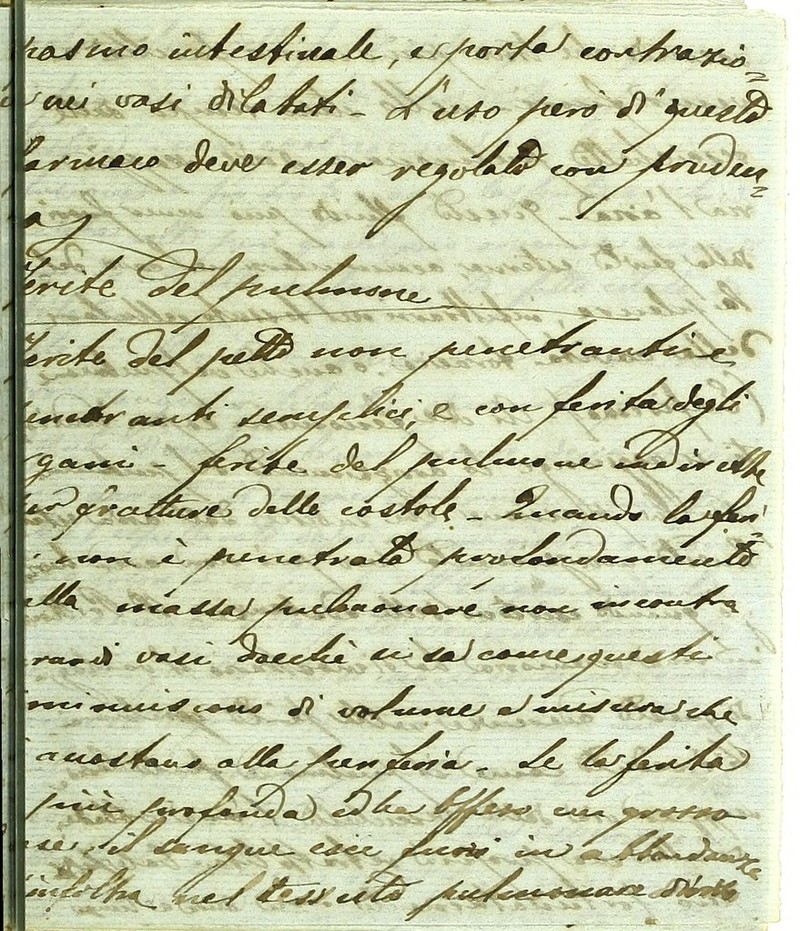 pasmo intestinale, e porta contrazio=
nei vasi dilatati - L'uso però di questo
farmaco deve esser regolato con pruden=
za
Ferite del pulmone
Ferite del petto non penetranti e
penetranti semplici, e con ferita degli
organi - ferite del pulmone indirette
per fratture delle costole - Quando la feri=
non è penetrata profondamente
nella massa pulmonare non incontra
grandi vasi dacchè si sa come questi
diminuiscono di volume a misura che
accostano alla periferia - Se la ferita
più profonda ed ha offeso un grosso
il sangue esce fuori in abbondanza
infiltra nel tessuto pulmonare